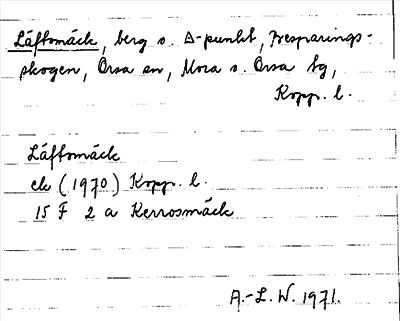 Låftomäck, berg o. Δ-punkt, Besparings-
skogen, Orsa sn, Mora o. Orsa tg,
Kopp. l.
Låftomäck
ek (1970) Kopp. l.
15 F 2 a Kerrosmäck
A.-L. W. 1971.